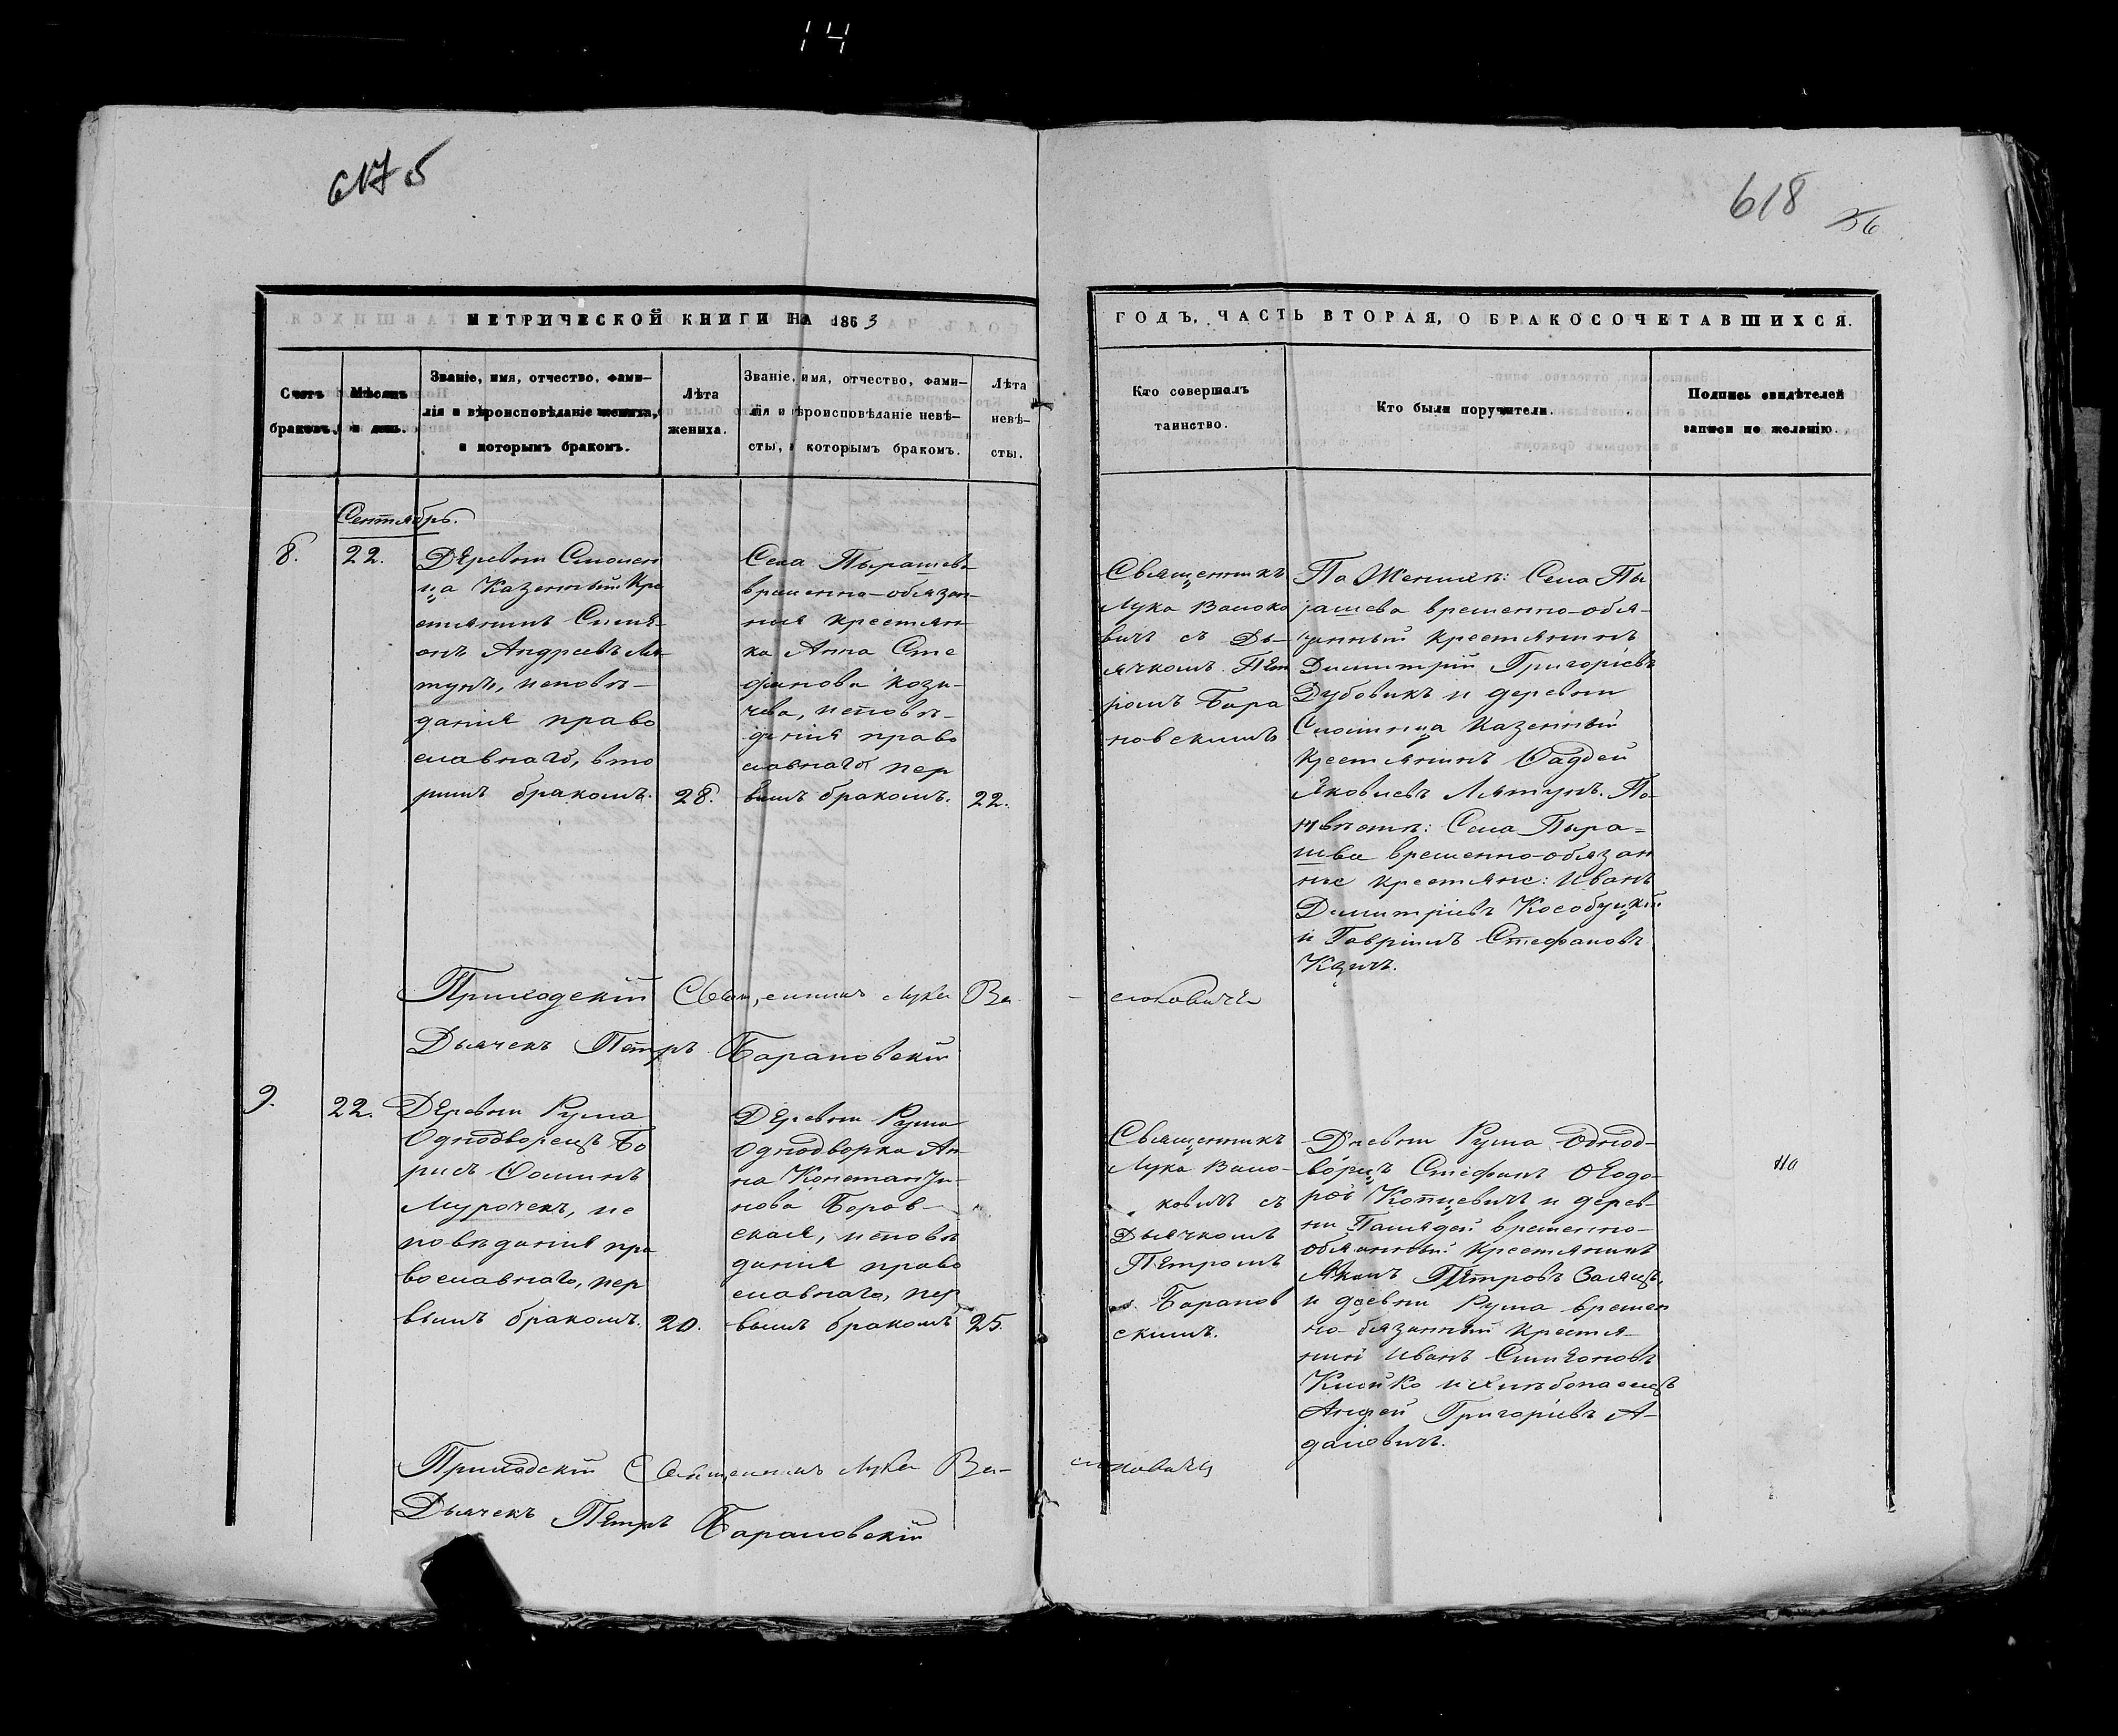 14
617 б
618
36
МЕТРИЧЕСКОЙ КНИГИ НА 1863
ГОДЪ, ЧАСТЬ ВТОРАЯ, О БРАКОСОЧЕТАВШИХСЯ.
Счетъ
браковъ.
Мѣсяцъ
и день.
Званіе, имя, отчество, фами-
лія и вѣроисповѣданіе жениха,
и которымъ бракомъ.
Лѣта
жениха.
Званіе, имя, отчество, фами-
лія и вѣроисповѣданіе невѣ-
сты, и которымъ бракомъ.
Лѣта
невѣ-
сты.
Кто совершалъ
таинство.
Кто были поручители.
Подпись свидѣтелей
записи по желанію.
Сентябрь.
8.
22.
Деревни
Казенный Кре
стьянинъ Симе-
онъ Андреевъ Ля-
тунъ, исповѣ-
данія право
славнаго, вто
рымъ бракомъ.
28.
Села Пырашева
временно-обязан-
ная крестьян
ка Анна Сте
фанова Кози-
чева, исповѣ-
данія право
славнаго пер
вымъ бракомъ.
22.
Священникъ
Лука Валюко
вичъ съ Дь-
ячкомъ Пет
ромъ Бара
новскимъ
По Женихѣ: Села Пы
рашева временно-обя-
занный крестьянинъ
Димитрій Григоріевъ
Дубовикъ и деревни
Казенный
Крестьянинъ Фаддей
Яковлевъ Лятунъ. По
невѣстѣ: Села Пыра-
шева временно-обязан
ные крестьяне: Иванъ
Димитріевъ Кособуцкій
и Гавріилъ Стефановъ
Приходскій Священникъ Лука Ва-
люковичъ
Дьячекъ Петръ Барановскій
9.
22.
Деревни Рума
Однодворецъ Бо
рисъ Фоминъ
Мурочекъ, ис
повѣданія пра
вославнаго, пер
вымъ бракомъ.
20.
Деревни Рума
Однодворка Ан-
на Константи-
нова Боров-
ская, исповѣ
данія право
славнаго, пер
вымъ бракомъ
25.
Священникъ
Лука Валю-
ковичъ съ
Дьячкомъ
Петромъ
Баранов
скимъ.
Деревни Рума Однод-
ворецъ Стефанъ Ѳеодо-
ровъ Копцевичъ и дерев-
ни временно-
обязанный Крестьянинъ
Петровъ Заяцъ,
и деревни Рума времен
но-обязанный Крестья-
нинъ Иванъ Симеоновъ
Клойко и хлѣбопашецъ
Андрей Григоріевъ А-
дамовичъ.
Приходскій Священникъ Лука Ва-
люковичъ
Дьячекъ Петръ Барановскій